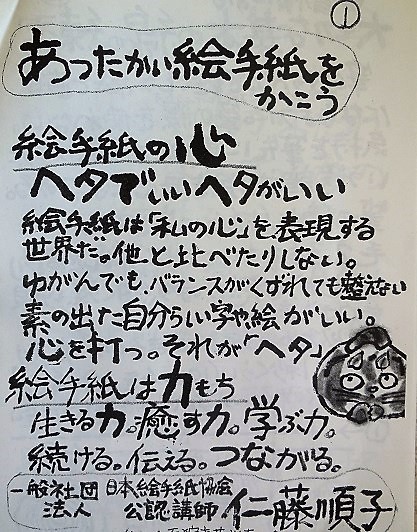 ①
あったかい絵手紙を
かこう
絵手紙の心
ヘタでいいヘタがいい
絵手紙は「私の心」を表現する
世界だ。他と比べたりしない。
ゆがんでも、バランスがくずれても整えない
素の出た自分らしい字や絵がいい。
心を打つ。それが「ヘタ」
絵手紙は力もち
生きる力。癒す力。学ぶ力。
続ける。伝える。つながる。
一般社団法人 日本絵手紙協会 公認講師 仁藤順子